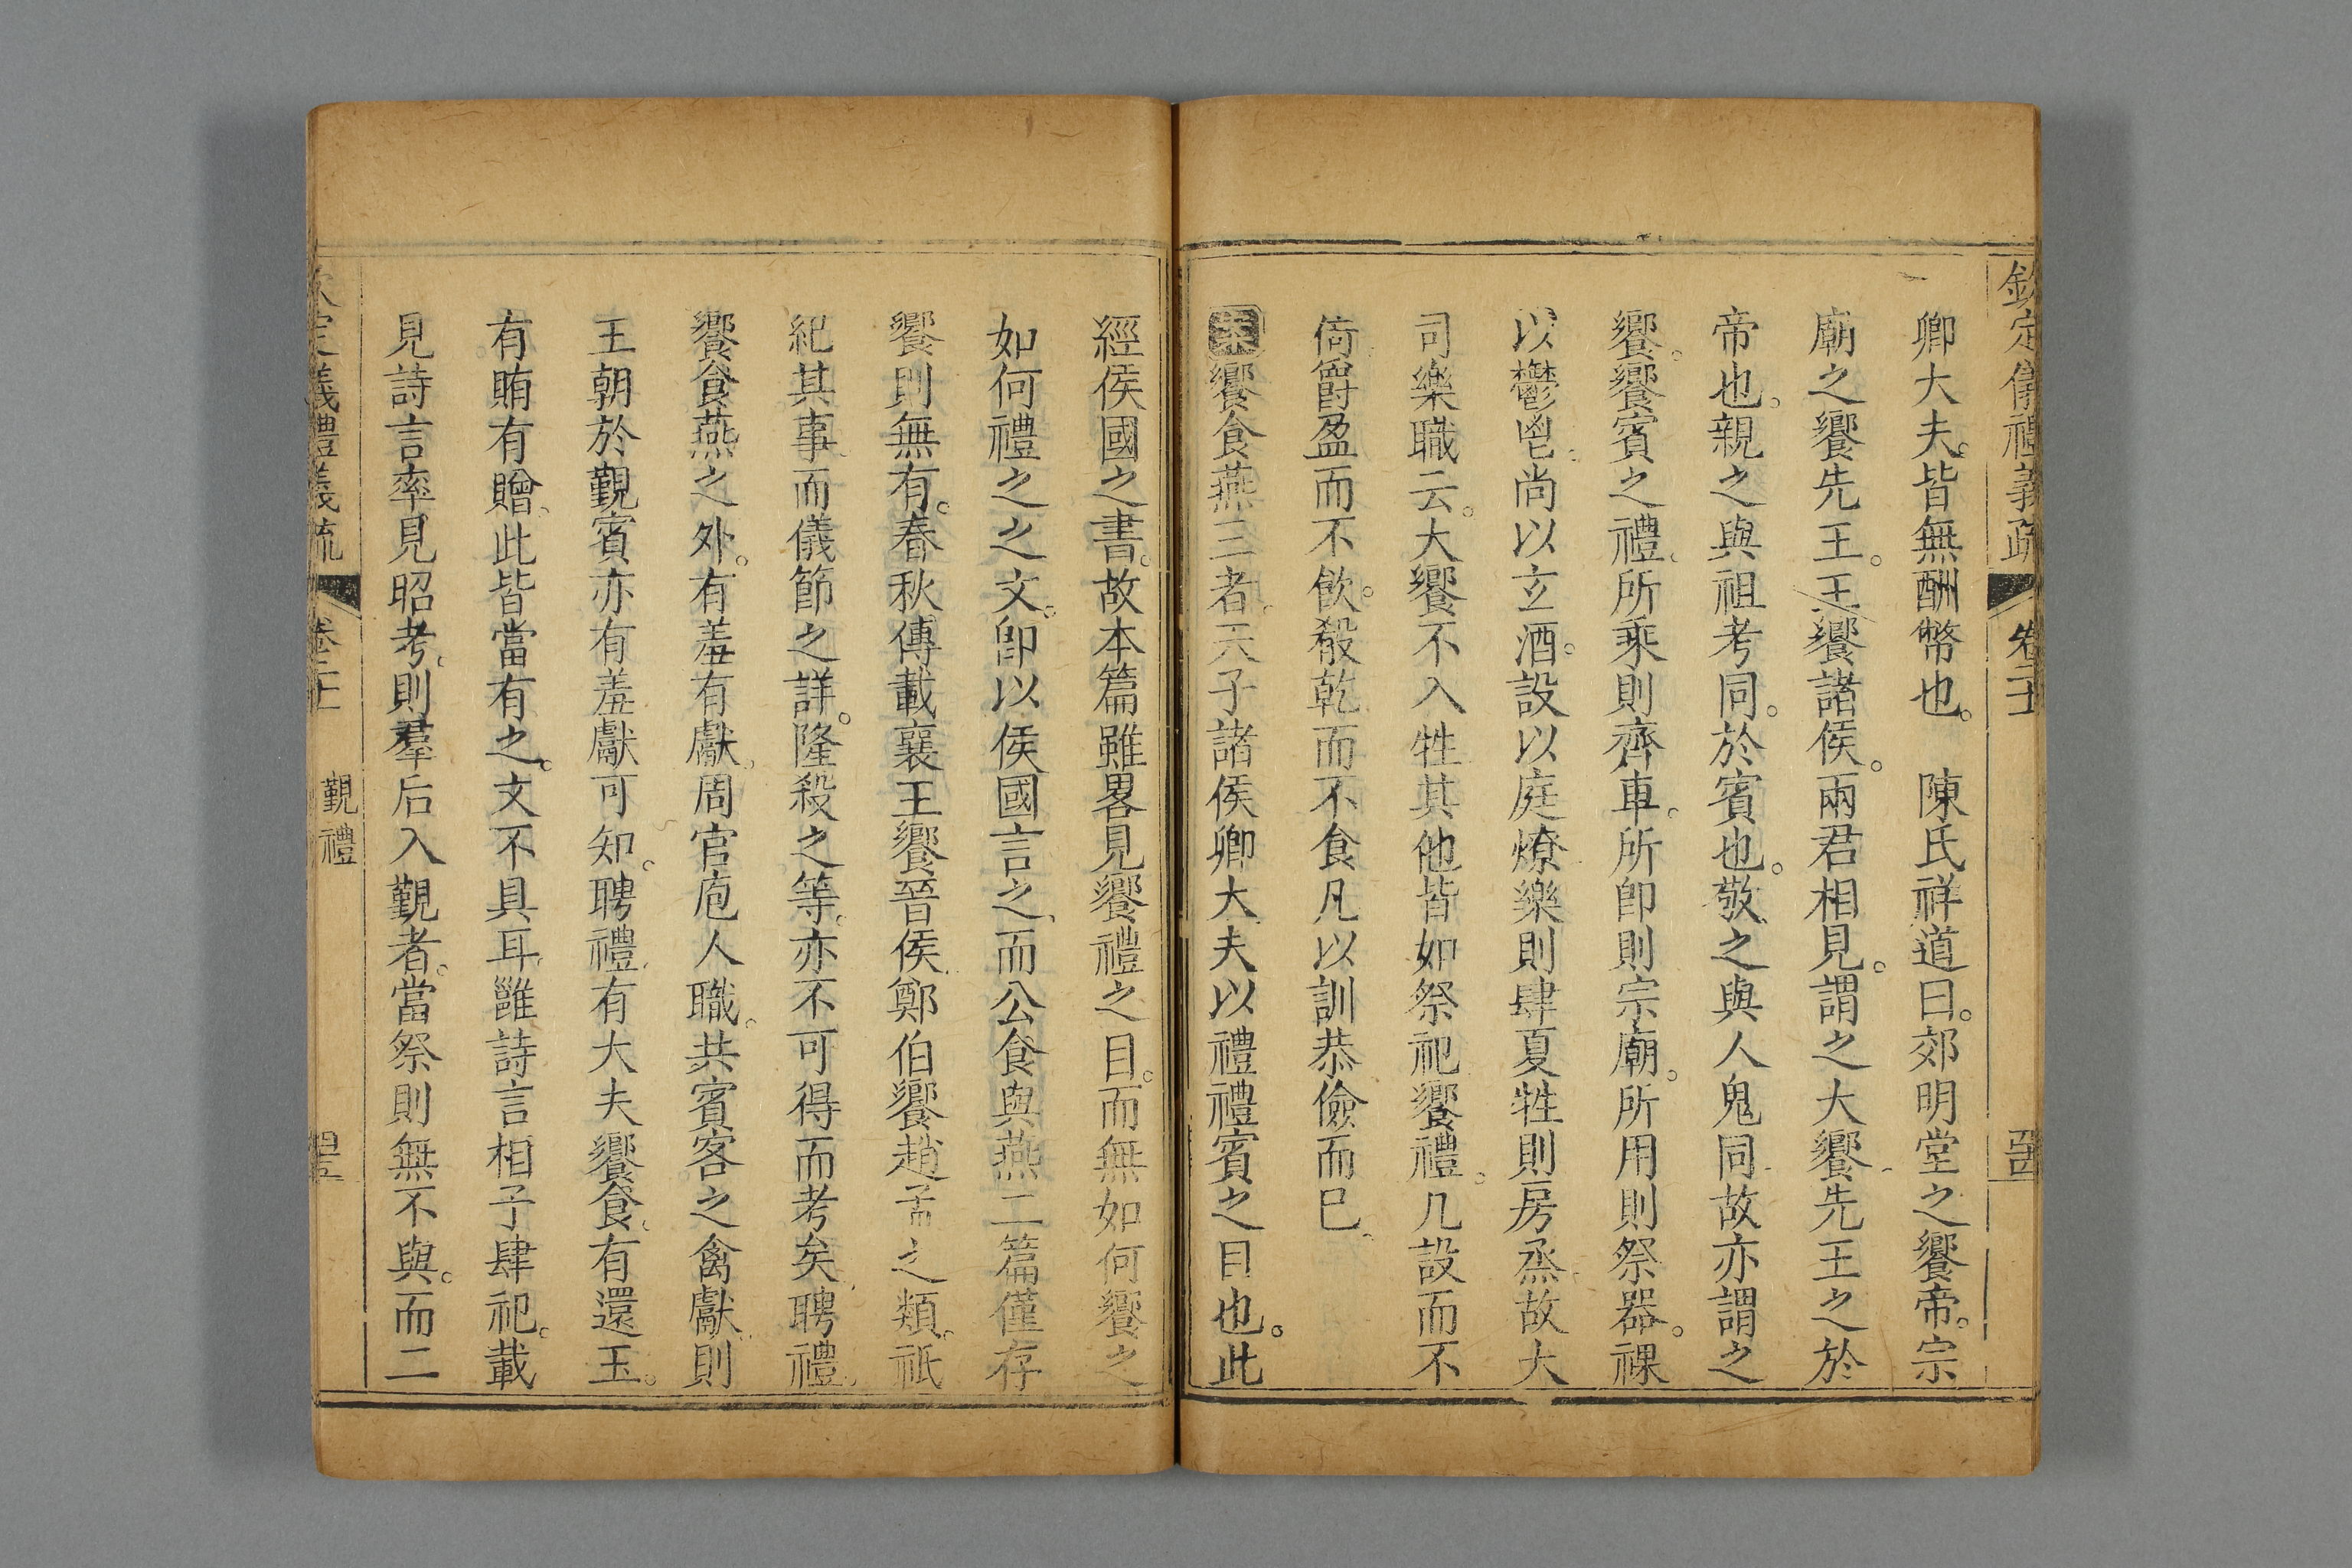 欽定儀禮義疏 卷二十
卿大夫。皆無酬幣也。 陳氏祥道曰。郊明堂之饗帝。宗
廟之饗先王。王饗諸侯。兩君相見。謂之大饗。先王之於
帝也。親之與祖考同。於賓也。敬之與人鬼同。故亦謂之
饗。饗賓之禮。所乘則齊車。所卽則宗廟。所用則祭器。祼
以鬱鬯。尚以玄酒。設以庭燎。樂則肆夏。牲則房烝。故大
司樂職云。大饗不入牲。其他皆如祭祀。饗禮。几設而不
倚。爵盈而不飲。殽乾而不食。凡以訓恭儉而已。
案饗食燕三者。天子諸侯卿大夫以禮禮賓之目也。此
經侯國之書。故本篇雖畧見饗禮之目。而無如何饗之
如何禮之之文。卽以侯國言之。而公食與燕二篇僅存
饗則無有。春秋傳載襄王饗晉侯。鄭伯饗趙孟之類。祇
紀其事。而儀節之詳。隆殺之等。亦不可得而考矣。聘禮。
饗食燕之外。有羞有獻。周官庖人職。共賓客之禽獻。則
王朝於覲賓亦有羞獻可知。聘禮。有大夫饗食。有還玉。
有賄有贈。此皆當有之。文不具耳。雝詩言相予肆祀。載
見詩言率見昭考。則羣后入覲者。當祭則無不與。而二
欽定儀禮義疏 卷二十 覲禮